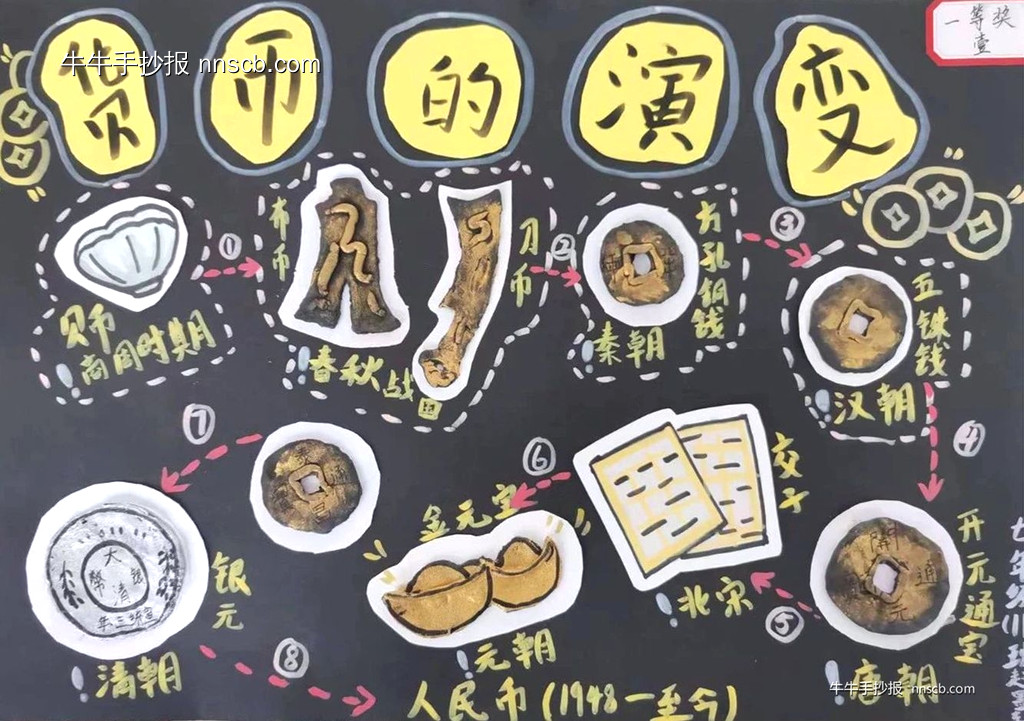 货币的演变
牛牛手抄报 nnscb.com
一等奖
壹
贝币
商周时期
①
布币
刀币
春秋战国
②
方孔铜钱
秦朝
③
五铢钱
汉朝
④
开元通宝
開通元
唐朝
⑤
交子
北宋
⑥
金元宝
元朝
⑦
银元
大清銀幣
宣统三年
清朝
⑧
人民币(1948一至今)
牛牛手抄报 nnscb.com